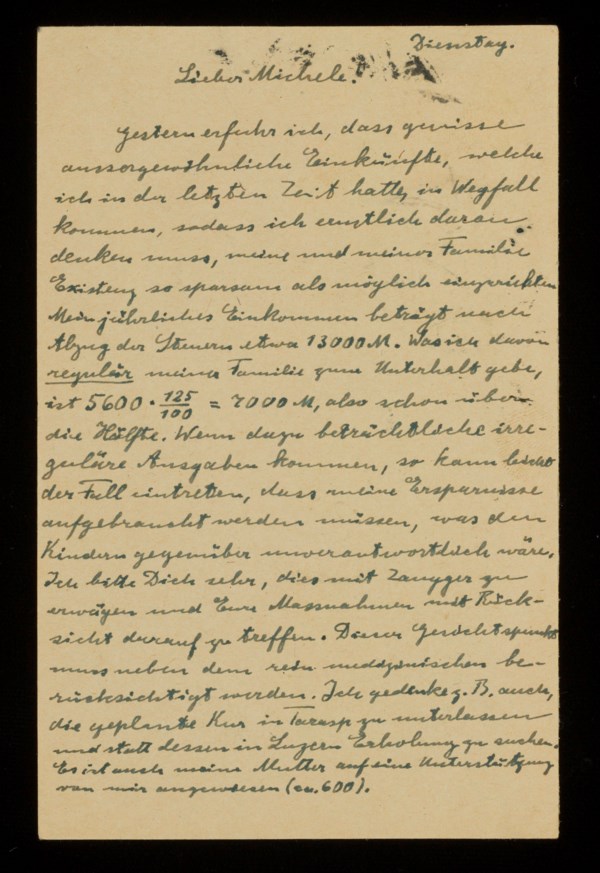 Dienstag.
Lieber Michele!
Gestern erfuhr ich, dass gewisse
aussergewöhnliche Einkünfte, welche
ich in der letzten Zeit hatte, in Wegfall
kommen, sodass ich ernstlich daran
denken muss, meine und meiner Familie
Existenz so sparsam als möglich einzurichten.
Mein jährliches Einkommen beträgt nach
Abzug der Steuern etwa 13000 M. Was ich davon
regulär meiner Familie zum Unterhalt gebe,
ist 5600 · 125/100 = 7000 M, also schon über
die Hälfte. Wenn dazu beträchtliche irre-
guläre Ausgaben kommen, so kann leicht
der Fall eintreten, dass meine Ersparnisse
aufgebraucht werden müssen, was den
Kindern gegenüber unverantwortlich wäre.
Ich bitte Dich sehr, dies mit Zangger zu
erwägen und Eure Massnahmen mit Rück-
sicht darauf zu treffen. Dieser Gesichtspunkt
muss neben dem rein medizinischen be-
rücksichtigt werden. Ich gedenke z. B. auch,
die geplante Kur in Tarasp zu unterlassen
und statt dessen in Luzern Erholung zu suchen.
Es ist auch meine Mutter auf eine Unterstützung
von mir angewiesen (ca. 600).